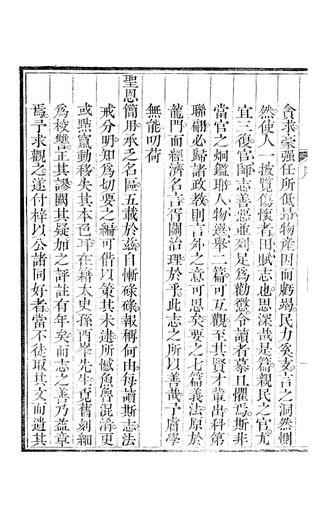 貪求豪强任所低昻物産因而虧竭民力奚支言之洞然惻
然使人一披覽傷懷者田賦志也思深哉是篇親民之官尤
宜三復官師志善惡並列足爲勸懲令讀者慕且懼焉斯非
當官之炯鑑耶人物選舉二篇可以互觀至其賢才輩出科第
聯翩必歸諸政教則言外之意可思矣要之七篇義法原於
龍門而經濟名言胥關治理於乎此志之所以善哉予膚學
無能叨荷
聖恩簡用承乏名區五載於兹自慚碌碌報稱何由每讀斯志法
戒分明知爲切要之編可借以策其未逮所憾魚魯混淆更
或㸃竄動移失其本色 在籍太史孫酉峯先生覓舊刻細
爲校讐正其謬闕其疑加之評註有年矣而志之善乃益章
焉予求觀之遂付梓以公諸同好者當不徒取其文而遺其